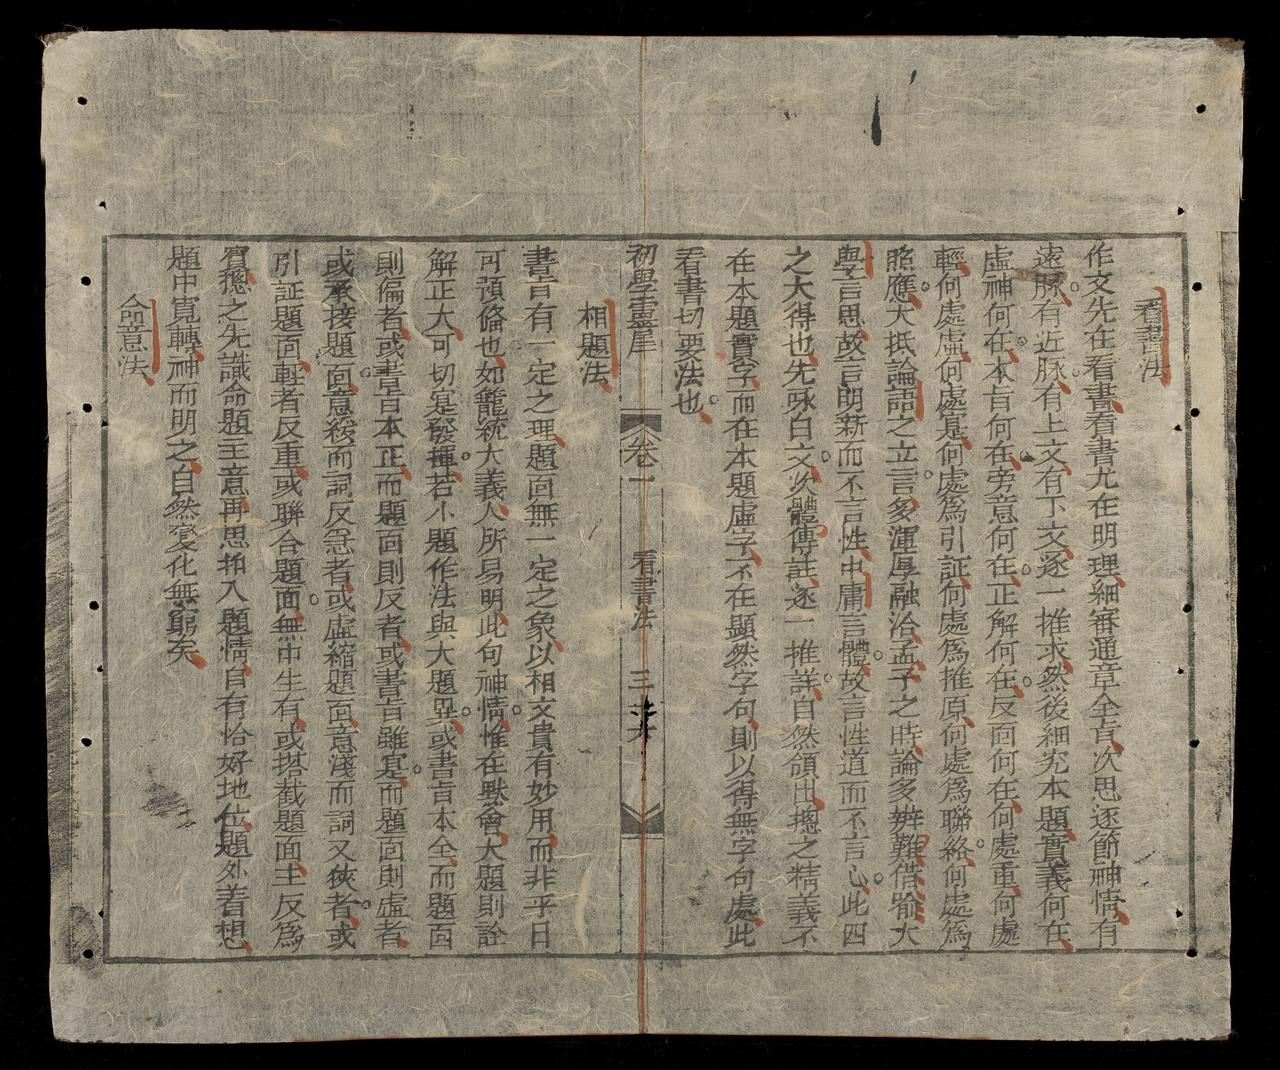 看書法
作文先在看書看書尤在明理細審通章全旨次思逐節神情有
遠脉有近脉有上文有下文逐一推求然後細究本題實義何在
虛神何在本旨何在旁意何在正解何在反面何在何處重何處
輕何處虛何處寔何處爲引証何處爲推原何處爲聯絡何處爲
照應大抵論語之立言多渾厚融洽孟子之時論多辨難借喻大
學言思故言明新而不言性中庸言體故言性道而不言心此四
之大得也先玩白文次體傳註逐一推詳自然領出摠之精義不
在本題實字而在本題虛字不在顯然字句則以得無字句處此
看書切要法也
初學靈犀 卷一 看書法 三
相題法
書旨有一定之理題面無一定之象以相文貴有妙用而非乎日
可預俻也如籠統大義人所易明此句神情惟在默會大題則詮
解正大可切寔發揮若小題作法與大題異或書旨本全而題面
則偏者或書旨本正而題面則反者或書旨雖寔而題面則虛者
或承接題面意緩而詞反急者或虛縮題面意淺而詞又俠者或
引証題面輕者反重或聯合題面無中生有或搭截題面主反爲
賓摠之先識命題主意再思拍入題情自有恰好地位題外着想
題中寛轉神而明之自然變化無窮矣
命意法